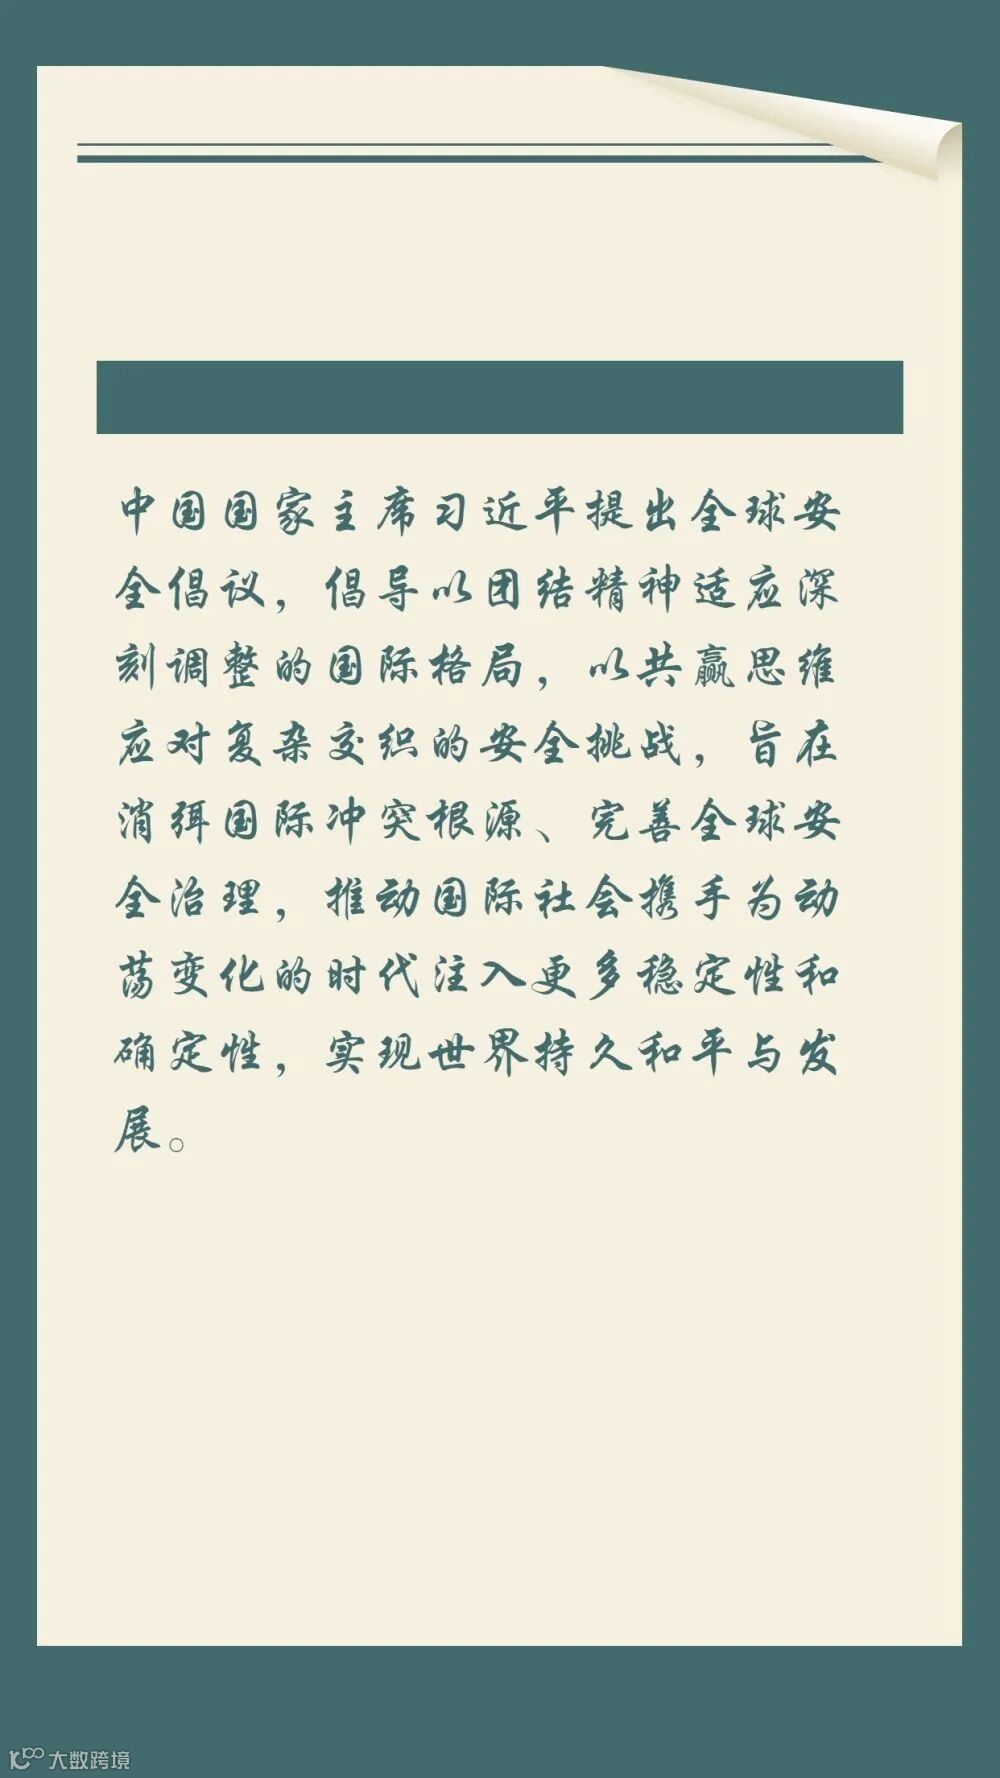 中国国家主席习近平提出全球安
全倡议，倡导以团结精神适应深
刻调整的国际格局，以共赢思维
应对复杂交织的安全挑战，旨在
消弭国际冲突根源、完善全球安
全治理，推动国际社会携手为动
荡变化的时代注入更多稳定性和
确定性，实现世界持久和平与发
展。
大数跨境